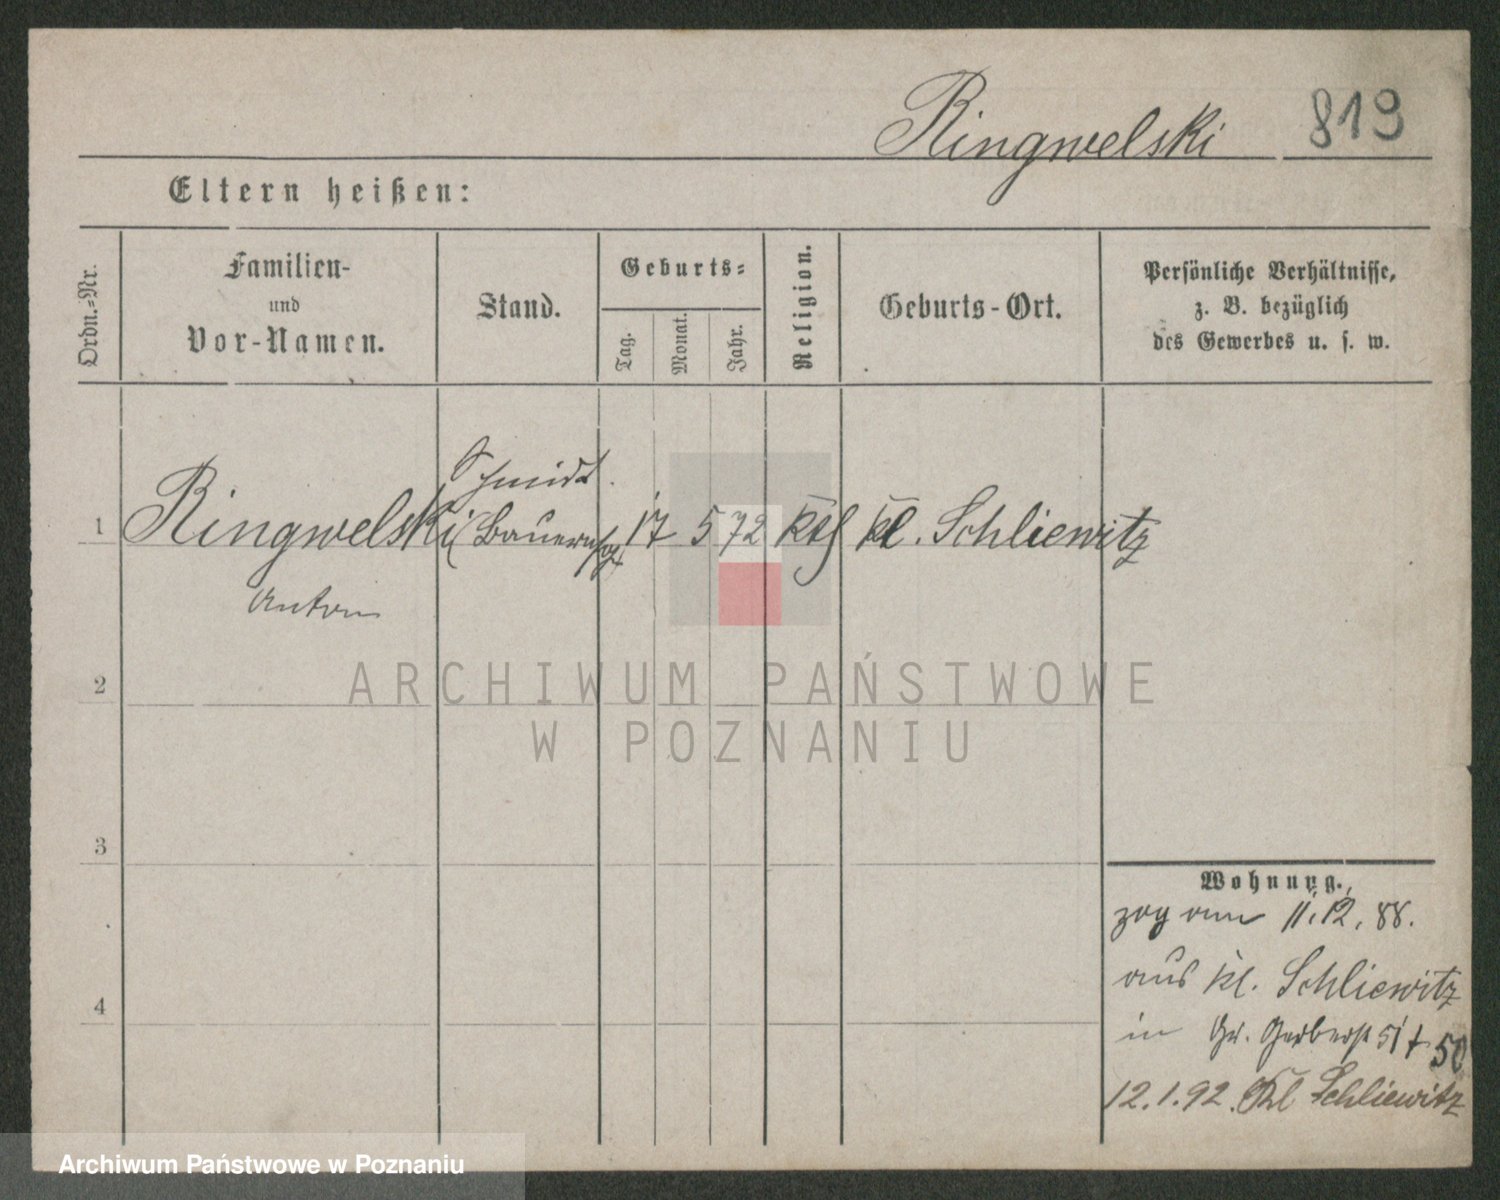 Ringwelski 819
Eltern heißen:
Ordn.-Nr.
Familien-
und
Vor-Namen.
Stand.
Geburts-
Tag.
Monat.
Jahr.
Religion.
Geburts-Ort.
Persönliche Verhältnisse,
z. B. bezüglich
des Gewerbes u. s. w.
Schmidt.
1 Ringwelski 17 5 72 kth kl. Schliewitz
Anton
2
3
4
Wohnung.
zog am 11.12.88.
aus kl. Schliewitz
in Gr. Gerberst 51 50
12.1.92. Kl Schliewitz
ARCHIWUM PAŃSTWOWE
W POZNANIU
Archiwum Państwowe w Poznaniu